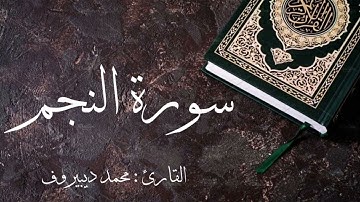 سورة النجم
القارئ : محمد ديبيروف